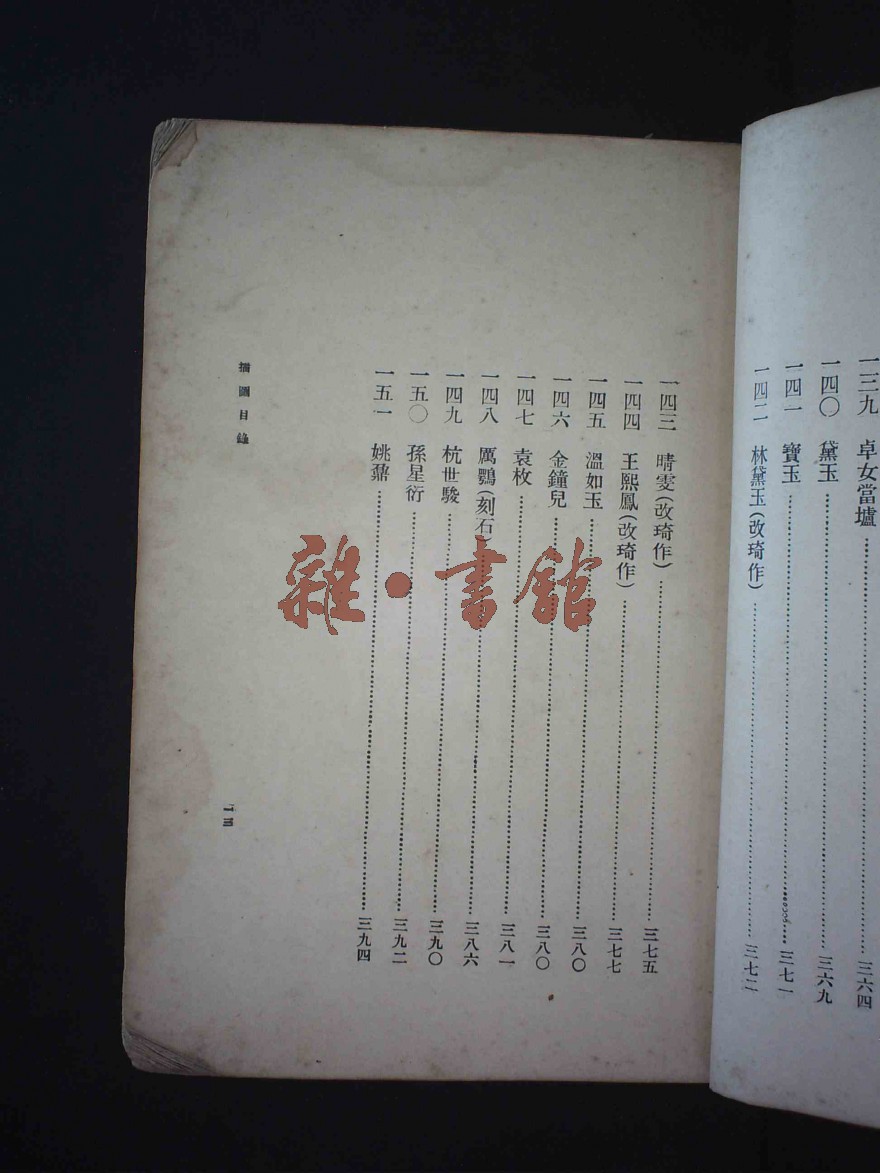 一三九 卓女當壚 三六四
一四〇 黛玉 三六九
一四一 寶玉 三七一
一四二 林黛玉(改琦作) 三七二
一四三 晴雯(改琦作) 三七五
一四四 王熙鳳(改琦作) 三七七
一四五 溫如玉 三八〇
一四六 金鐘兒 三八〇
一四七 袁枚 三八一
一四八 厲鶚(刻石) 三八六
一四九 杭世駿 三九〇
一五〇 孫星衍 三九二
一五一 姚鼐 三九四
插圖目錄
雜·書館